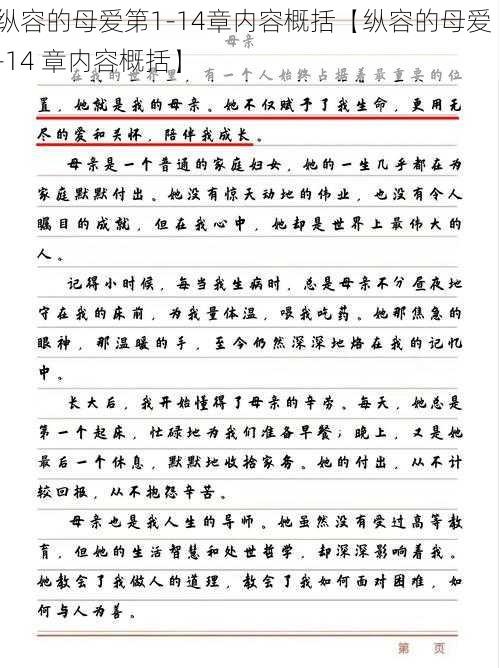 纵容的母爱第1-14章内容概括【纵容的母爱
-14 章内容概括】
母亲
在我的世界里，有一个人始终占据着最重要的位
置，她就是我的母亲。她不仅赋予了我生命，更用无
尽的爱和关怀，陪伴我成长。
母亲是一个普通的家庭妇女，她的一生几乎都在为
家庭默默付出。她没有惊天动地的伟业，也没有令人
瞩目的成就，但在我心中，她却是世界上最伟大的
人。
记得小时候，每当我生病时，总是母亲不分昼夜地
守在我的床前，为我量体温，喂我吃药。她那焦急的
眼神，那温暖的手，至今仍然深深地烙在我的记忆
中。
长大后，我开始懂得了母亲的辛劳。每天，她总是
第一个起床，忙碌地为我们准备早餐；晚上，又是她
最后一个休息，默默地收拾家务。她的付出，从不计
较回报，从不抱怨辛苦。
母亲也是我人生的导师。她虽然没有受过高等教
育，但她的生活智慧和处世哲学，却深深影响着我。
她教会了我做人的道理，教会了我如何面对困难，如
何与人为善。
第 页